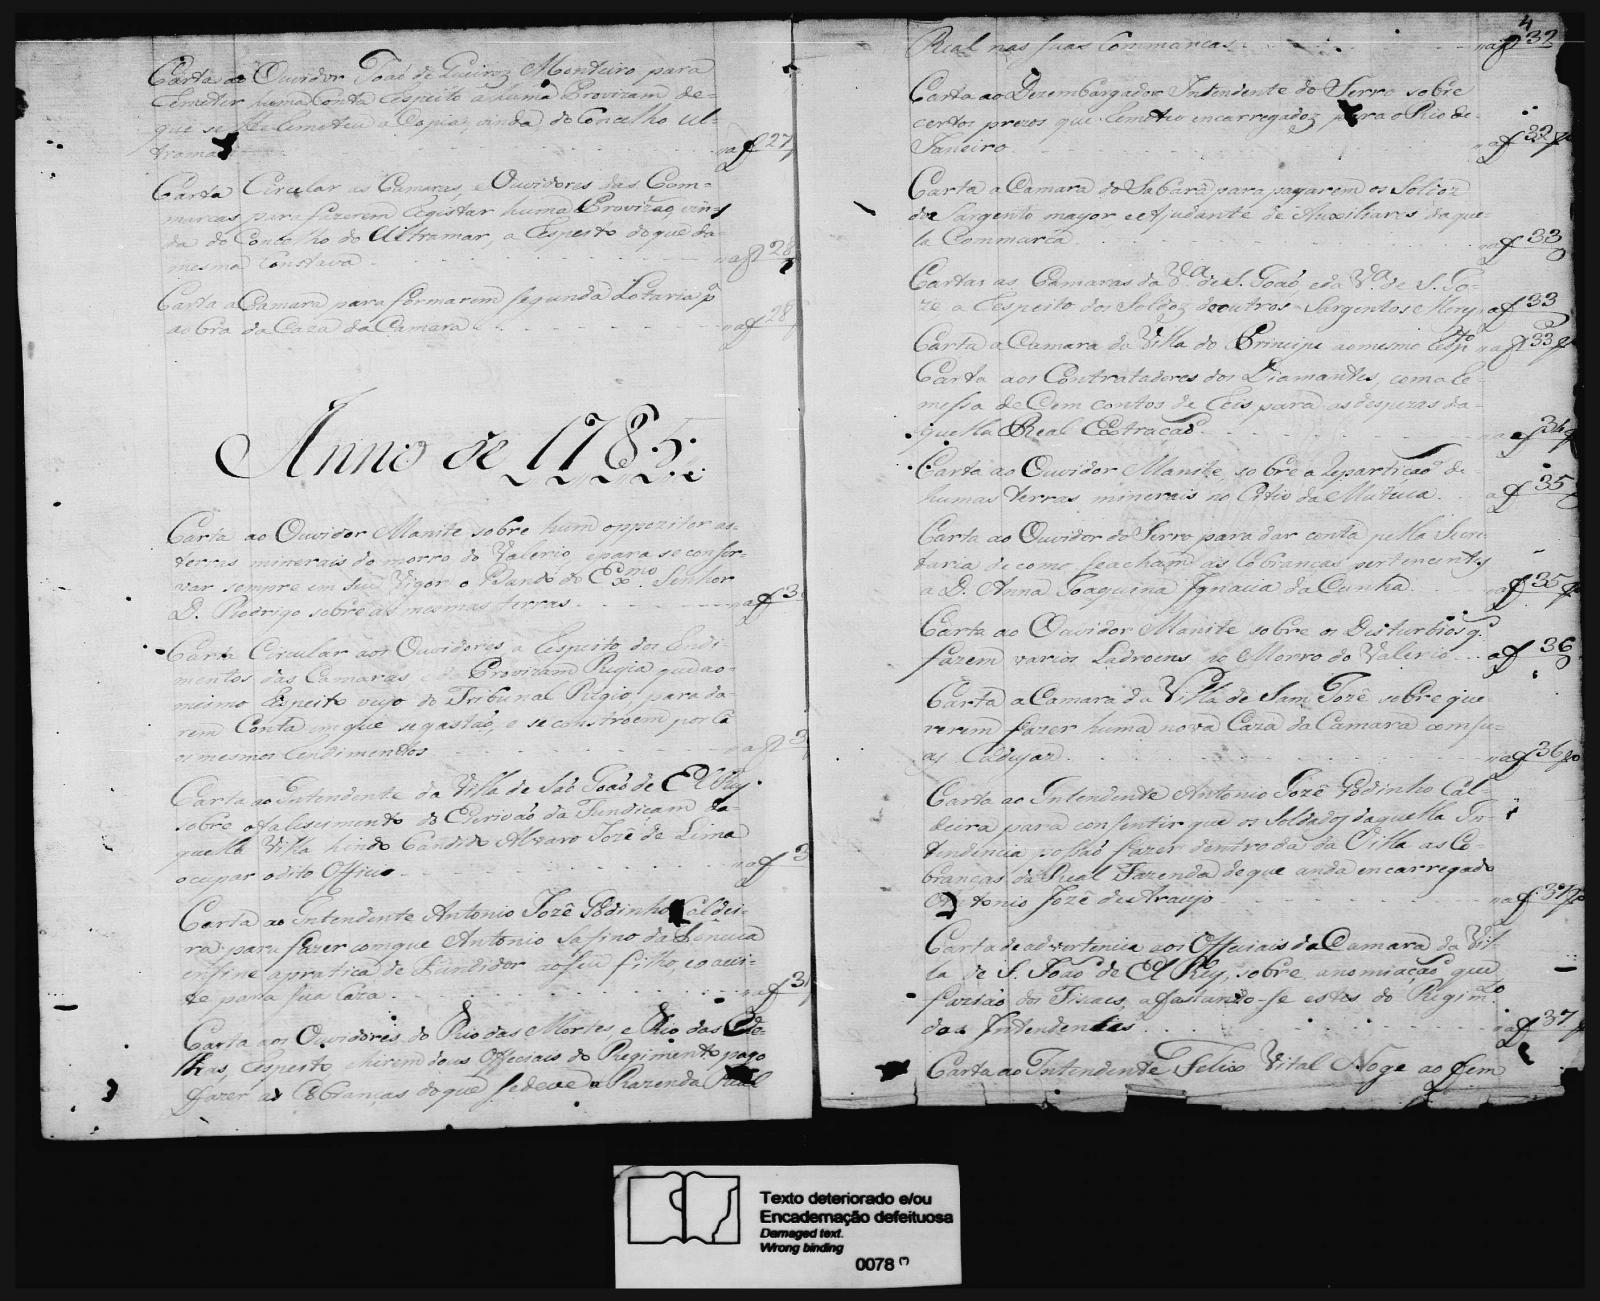 Carta ao Ouvidor João de Queiroz Monteiro para
Remeter huma Conta Respeito a huma Provizam de-
que se lhe Remeteu a Copia, vinda do Concelho Ul-
tramar na f 27
Carta Circular as Camaras, e Ouvidores das Com-
marcas para fazerem Registar huma Provizaõ vin-
da do Concelho do Ultramar, a Respeito do que da
mesma Constava na f 28
Carta a Camara para formarem segunda Lotaria pª
a obra da Caza da Camara na f 28
Anno de 1785.
Carta ao Ouvidor Manite sobre hum oppozitor as-
terras minerais do morro do Valerio, e para se conser-
var sempre em seu Vigor o Bando do Exmo. Senhor
D. Rodrigo sobre as mesmas terras na f 3
Carta Circular aos Ouvidores a Respeito dos Rendi-
mentos das Camaras e da Provizam Regia que ao-
mesmo Respeito veyo do Tribunal Regio, para da-
rem Conta em que se gastaõ, e se constroem por Cá
os mesmos Rendimentos na f 3
Carta ao Intendente da Villa de Saõ Joaõ de El Rey
sobre o falescimento do Escrivaõ da Fundiçam da-
quella Villa hindo Candido Alvaro Jozê de Lima
ocupar o dito Officio na f 3
Carta ao Intendente Antonio Jozê Godinho Caldei-
ra para fazer com que Antonio da
ensine a pratica de Fundidor ao seu filho, e o acei-
te para sua Caza na f 3
Carta aos Ouvidores do Rio das Mortes, e Rio das Ve-
lhas, Respeito, e hirem dous Officiais do Regimento pago
fazer as Cobranças do que se deve a Razenda Real
4
Real nas suas Commarcas na f 32
Carta ao Dezembargador Intendente do Serro sobre
certos prezos que Remeteo encarregados para o Rio de-
Janeiro na f 32
Carta a Camara do Sabarâ para pagarem os Soldoz
dos Sargento mayor e Ajudante de Auxiliares daque-
la Commarca na f 33
Cartas as Camaras da Vª. de S. Joaõ, e da Vª. de S. Jo-
zê a Respeito dos Soldoz de outros Sargentos Mores na f 33
Carta a Camara da Villa do Principe ao mesmo Respto na f 33
Carta aos Contratadores dos Diamantes, com a Re-
messa de Cem contos de Reis para as despezas da-
quella Real Extraçaõ na f 34
Carta ao Ouvidor Manite, sobre a Repartiçaõ de
humas terras minerais no Citio da Mutuca. a f 35
Carta ao Ouvidor do Serro para dar conta pella Secre-
taria de como se achaõ as Cobrancas pertencentes
a D. Anna Joaquina Ignacia da Cunha. na f 35
Carta ao Ouvidor Manite sobre os Disturbios q.
fazem varios Ladroens no Morro do Valerio a f 36
Carta a Camara da Villa de Sam Jozê sobre que-
rerem fazer huma nova Caza da Camara com su-
as Cadeyas na f 36
Carta ao Intendente Antonio Jozê Godinho Cal-
deira para consentir que os Soldados daquella In-
tendencia possaõ fazer dentro da da Villa as Co-
branças da Real Fazenda de que anda encarregado
Antonio Jozê de Araujo na f 37
Carta de advertencia aos Officiais da Camara da Vil-
la de S. Joaõ de El Rey, sobre a nomiaçaõ, que
faziaõ dos Fiscaes, afastando-se estes do Regimto
das Intendencias na f 37
Carta ao Intendente Felix Vital Noge ao fem
Texto deteriorado e/ou
Encadernação defeituosa
Damaged text.
Wrong binding
0078 (*)